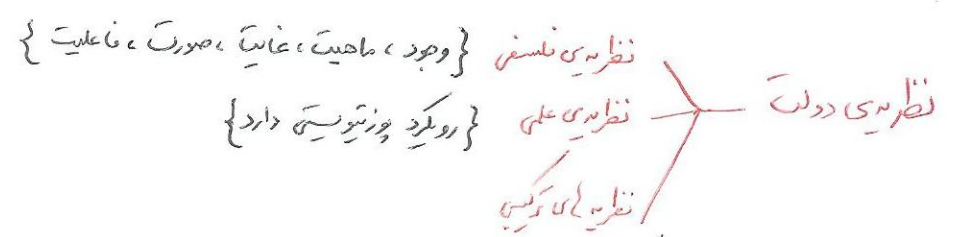 نظریه‌ی دولت
نظریه‌ی فلسفی {وجود، ماهیت، غایت، صورت، فاعلیت}
نظریه‌ی علمی {رویکرد پوزتیویستی دارد}
نظریه های ترکیبی